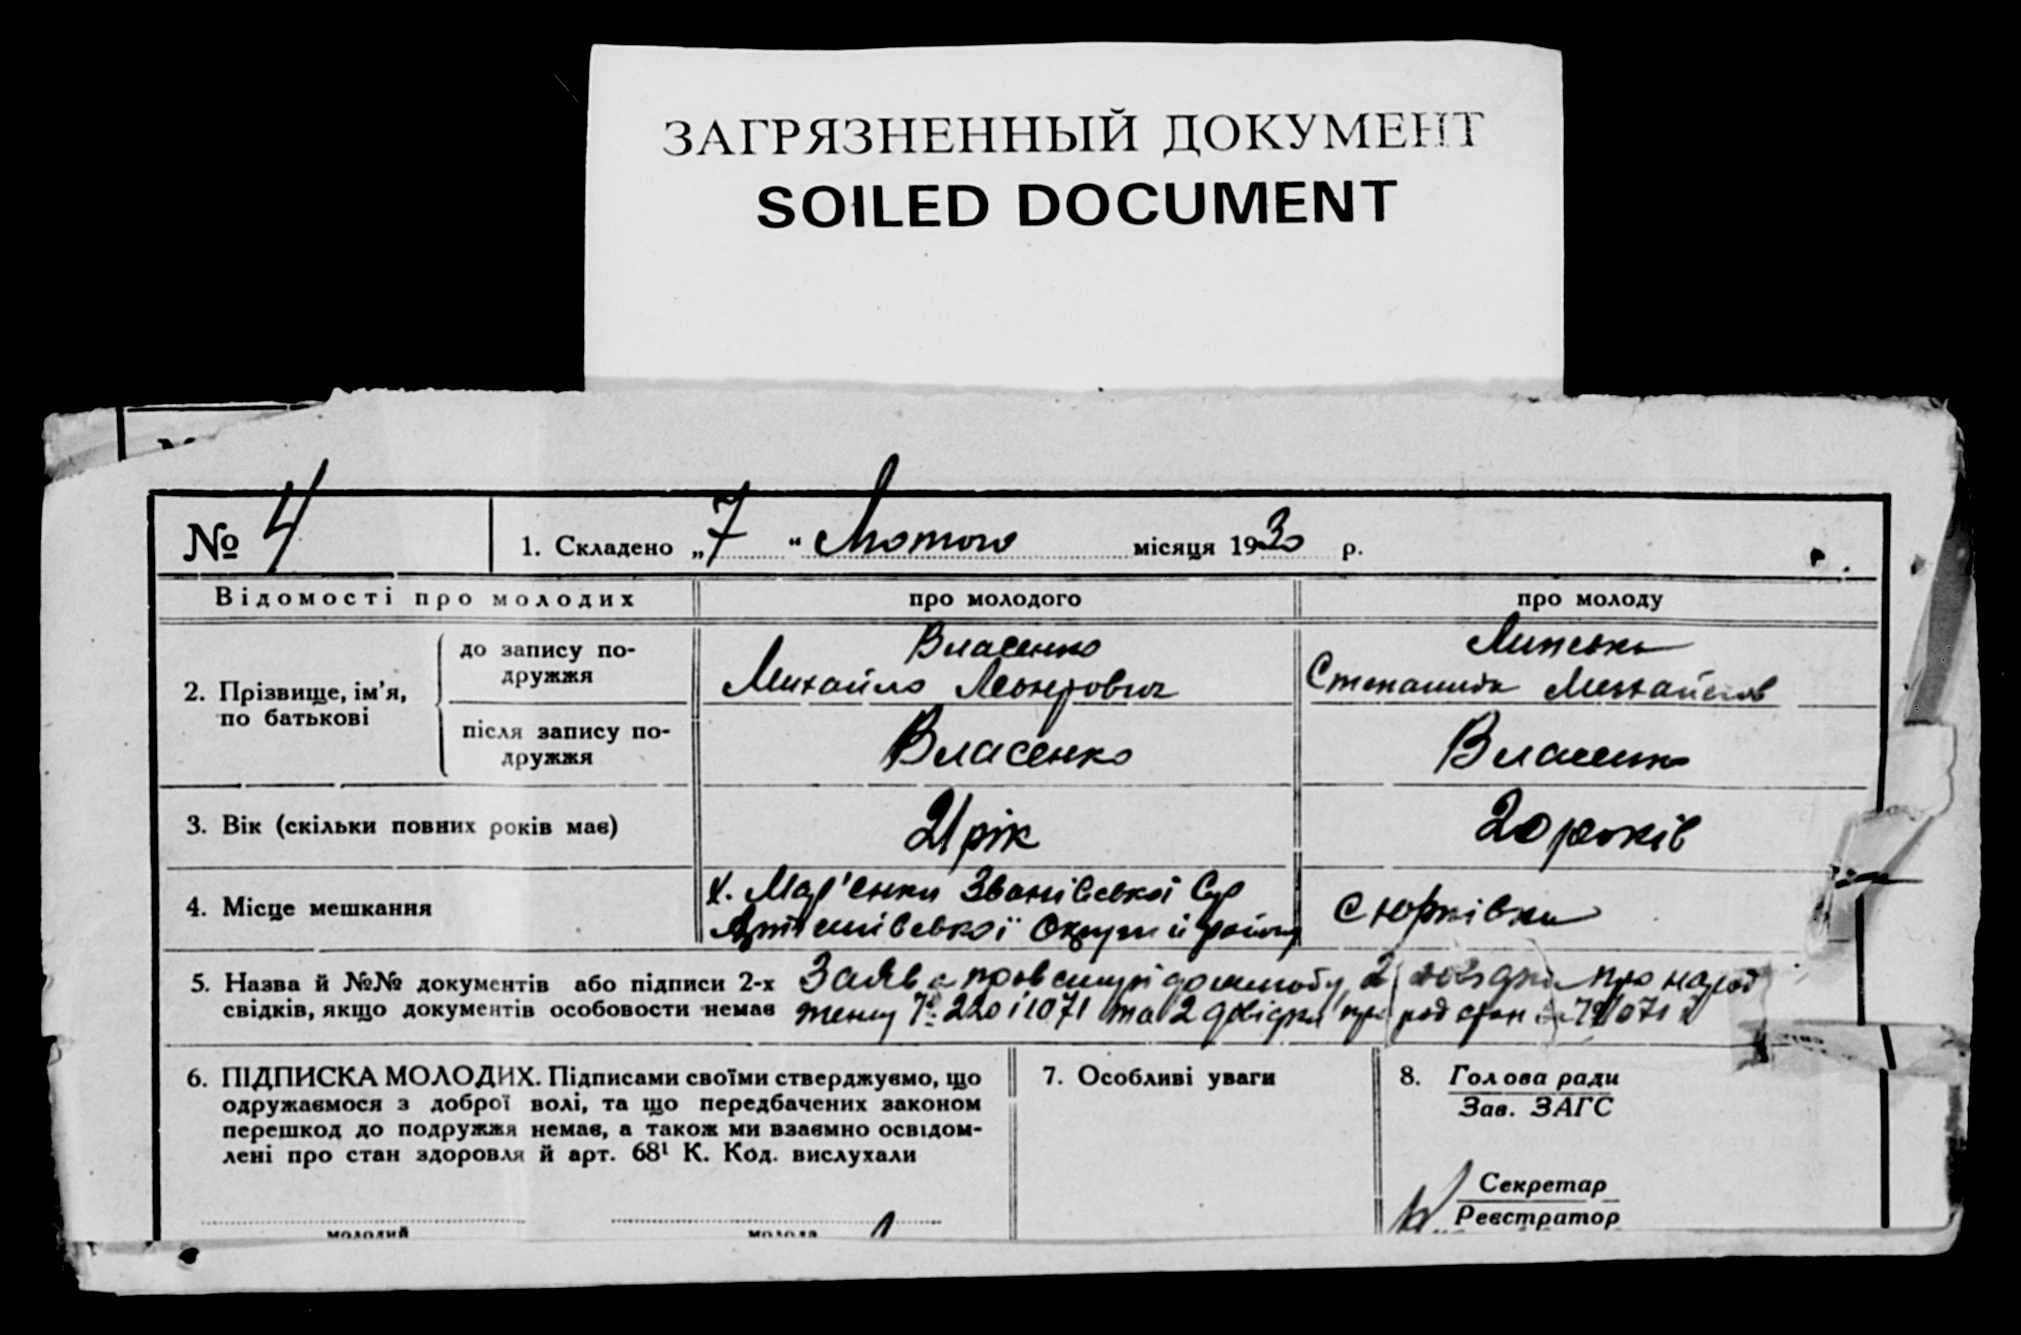 ЗАГРЯЗНЕННЫЙ ДОКУМЕНТ
SOILED DOCUMENT
№ 4
1. Складено „7“ Лютого місяця 1930 р.
Відомості про молодих
про молодого
про молоду
2. Прізвище, ім’я,
по батькові
до запису по-
дружжя
Власенко
Михайло
Степанида
після запису по-
дружжя
Власенко
Власенко
3. Вік (скільки повних років має)
21 рік
20 років
4. Місце мешкання
х. Мар'енки Званівської С/р
Артемівської Округи й району
с Юрківки
5. Назва й №№ документів або підписи 2-х
свідків, якщо документів особовости немає
Заява про
про народ
ження № 220 і 1071 та 2 довідки про род стан
6. ПІДПИСКА МОЛОДИХ. Підписами своїми стверджуємо, що
одружаємося з доброї волі, та що передбачених законом
перешкод до подружжя немає, а також ми взаємно освідом-
лені про стан здоровля й арт. 68¹ К. Код. вислухали
молодий
молода
7. Особливі уваги
8. Голова ради
Зав. ЗАГС
Секретар
Реєстратор